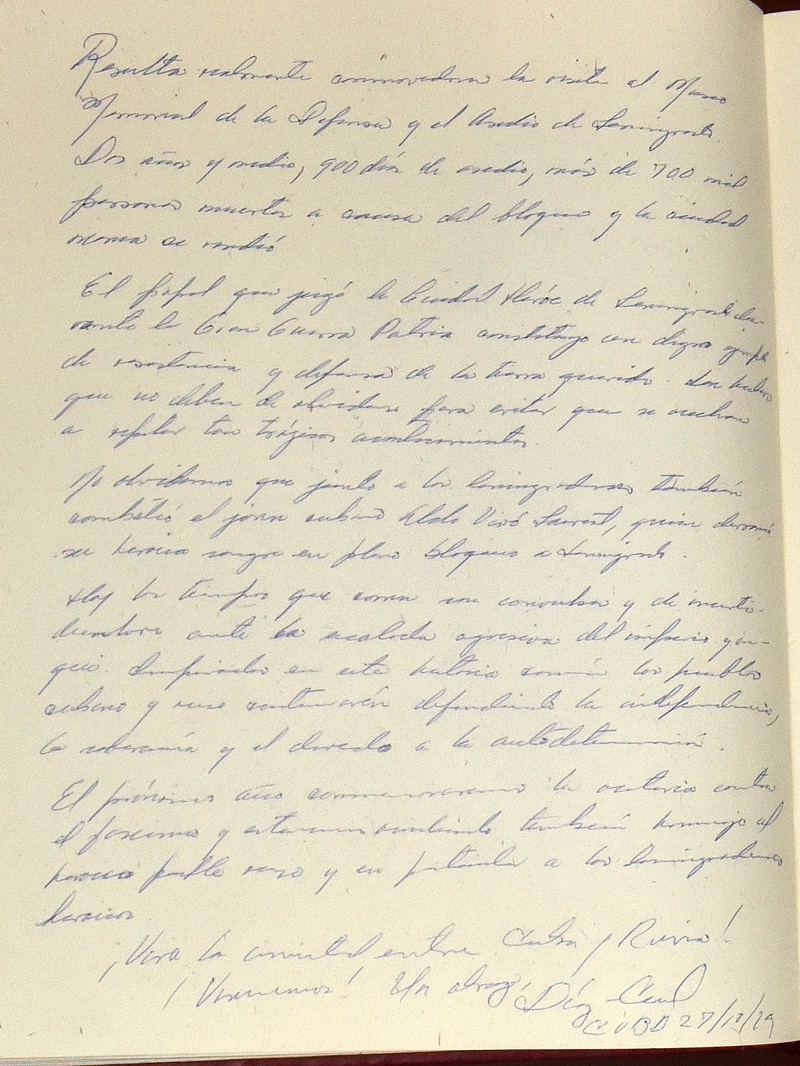 Resulta realmente conmovedora la visita al Museo
Memorial de la Defensa y el Asedio de Leningrado.
Dos años y medio, 900 días de asedio, más de 700 mil
personas muertas a causa del bloqueo y la ciudad
nunca se rindió
El papel que jugó la Ciudad Héroe de Leningrado du-
rante la Gran Guerra Patria constituye un digno ejemplo
de resistencia y defensa de la tierra querida. Son hechos
que no deben de olvidarse para evitar que se vuelvan
a repetir tan trágicos acontecimientos.
No olvidamos que junto a los leningradenses también
combatió el joven cubano Aldo Vivó Laurent, quien derramó
su heroica sangre en pleno bloqueo a Leningrado.
Hoy los tiempos que corren son convulsos y de incerti-
dumbre ante la escalada agresiva del imperio yan-
qui. Inspirados en esta historia común los pueblos
cubano y ruso continuarán defendiendo la independencia,
la soberanía y el derecho a la autodeterminación.
El próximo año conmemoraremos la victoria contra
el fascismo y estaremos rindiendo también homenaje al
heroico pueblo ruso y en particular a los leningradenses
heroicos.
¡Viva la amistad entre Cuba y Rusia!
¡Venceremos! Un abrazo, Díaz-Canel
CUBA 27/10/19